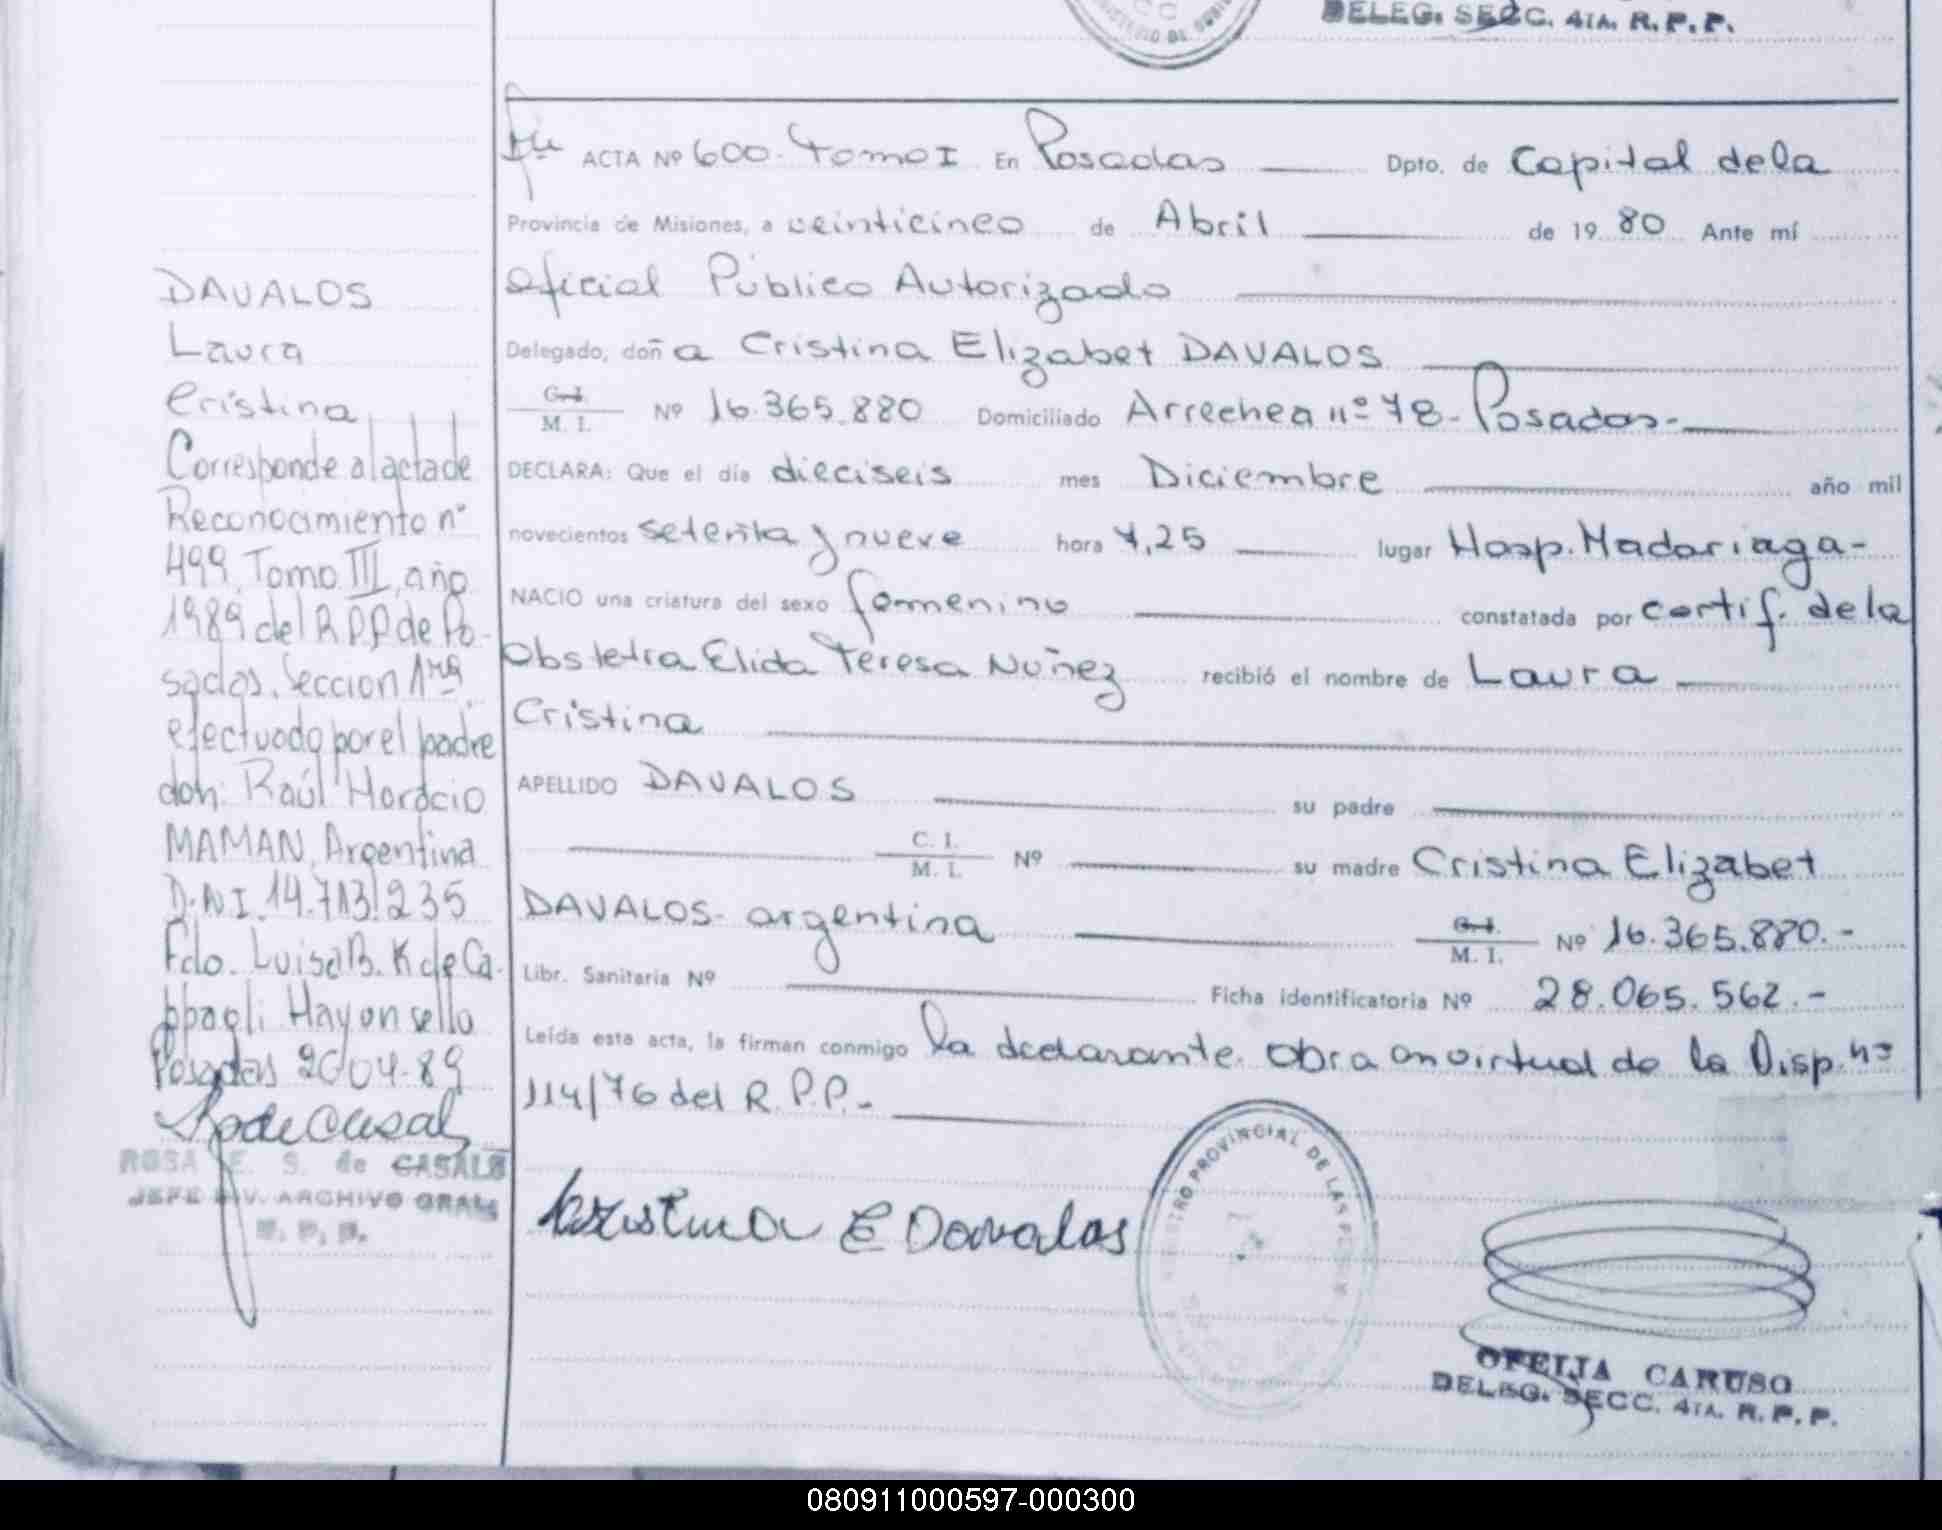 DELEG. SECC. 4TA. R.P.P.
ACTA Nº 600. Tomo I En Posadas Dpto. de Capital de la
Provincia de Misiones, a veinticinco de Abril de 1980 Ante mí
Oficial Público Autorizado
Delegado, doña Cristina Elizabet DAVALOS
C.I. M. I. Nº 16.365.880 Domiciliado Arrechea nº 78- Posadas-
DECLARA: Que el día dieciseis mes Diciembre año mil
novecientos setenta y nueve hora 7,25 lugar Hosp. Madariaga-
NACIO una criatura del sexo femenino constatada por certif. de la
Obstetra Elida Teresa Nuñez recibió el nombre de Laura
Cristina
APELLIDO DAVALOS su padre
C. I. M. I. Nº su madre Cristina Elizabet
DAVALOS- argentina C.I. M. I. Nº 16.365.880.-
Libr. Sanitaria Nº Ficha identificatoria Nº 28.065.562.-
Leída esta acta, la firman conmigo la declarante. Obra en virtud de la Disp. nº
114/76 del R.P.P.-
Cristina E Davalos
REGISTRO PROVINCIAL DE LAS PERSONAS
OFELIA CARUSO
DELEG. SECC. 4TA. R.P.P.
DAVALOS
Laura
Cristina
Corresponde al acta de
Reconocimiento nº
499, Tomo III, año
1989 del R.P.P. de Po-
sadas, Seccion 1ra
efectuado por el padre
don: Raúl Horacio
MAMAN, Argentina
D.N.I. 14.713.235
Fdo. Luisa B. K de Ca-
ppagli Hay un sello
Posadas 20-04-89
ROSA E. S. de CASALS
JEFE DIV. ARCHIVO GRAL
R. P. P.
080911000597-000300